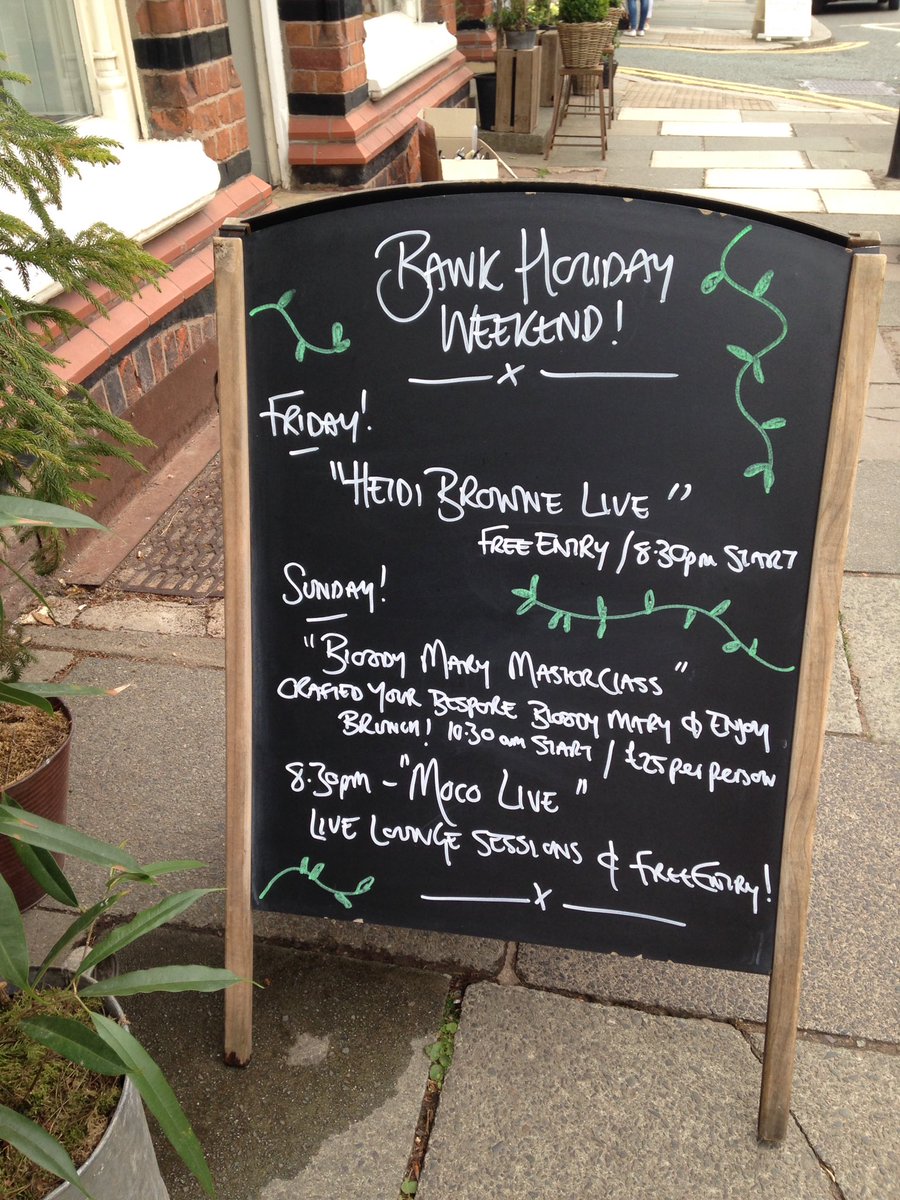 BANK HOLIDAY
WEEKEND!
x
FRIDAY!
"HEIDI BROWNE LIVE"
FREE ENTRY / 8.30pm START
SUNDAY!
"BLOODY MARY MASTERCLASS"
CRAFTED YOUR BESPOKE BLOODY MARY & ENJOY
BRUNCH! 10.30 am START / £25 per person
8.30pm - "MOCO LIVE"
LIVE LOUNGE SESSIONS & FREE ENTRY!
x